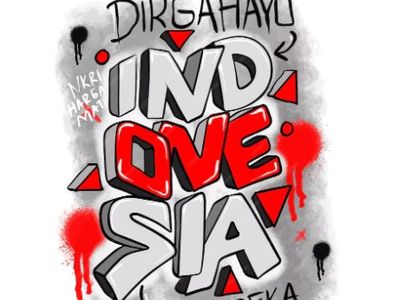 DIRGAHAYU
NKRI
HARGA
MATI
IND
ONE
SIA